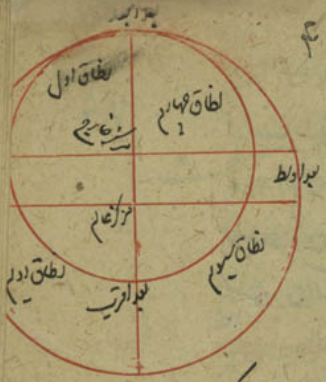 بعد ابعد
نطاق اول
نطاق چهارم
مرکز خارج
بعد اوسط
مرکز عالم
نطاق سیوم
نطاق دویم
بعد اقرب